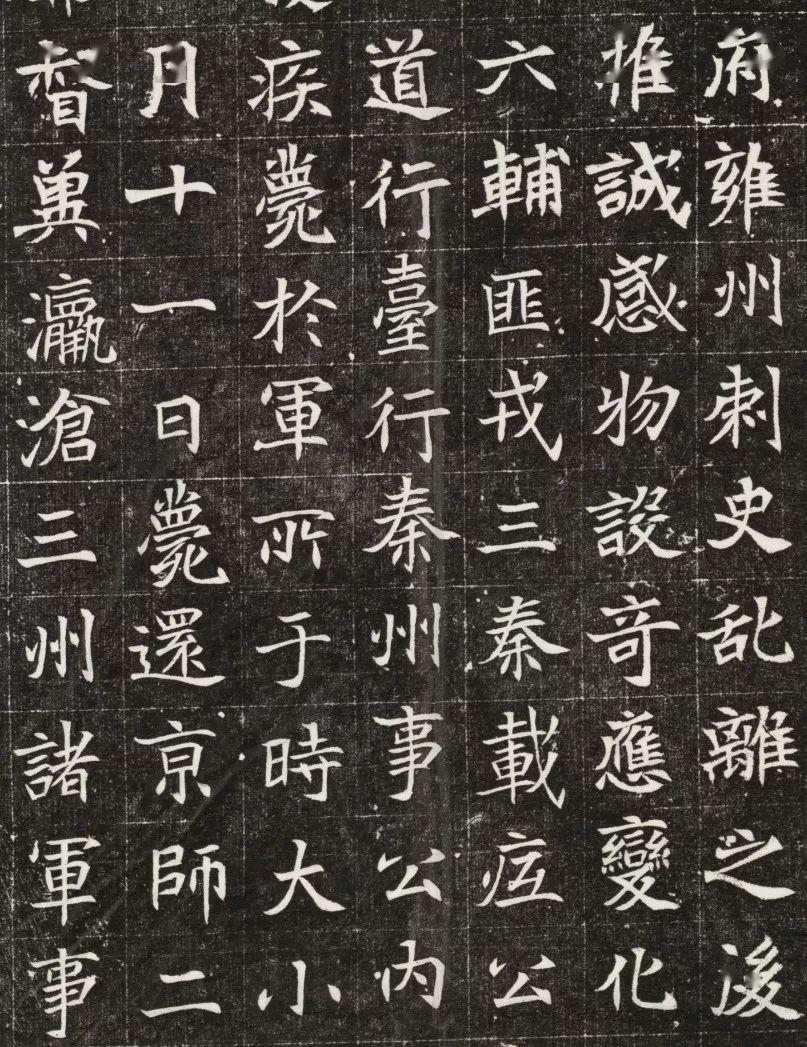 府雍州刺史乱離之後
推誠感物設奇應變化
六輔匪戎三秦載㽵公
道行臺行秦州事公内
疾薨於軍所于時大小
月十一日薨還京師二
督冀瀛滄三州諸軍事